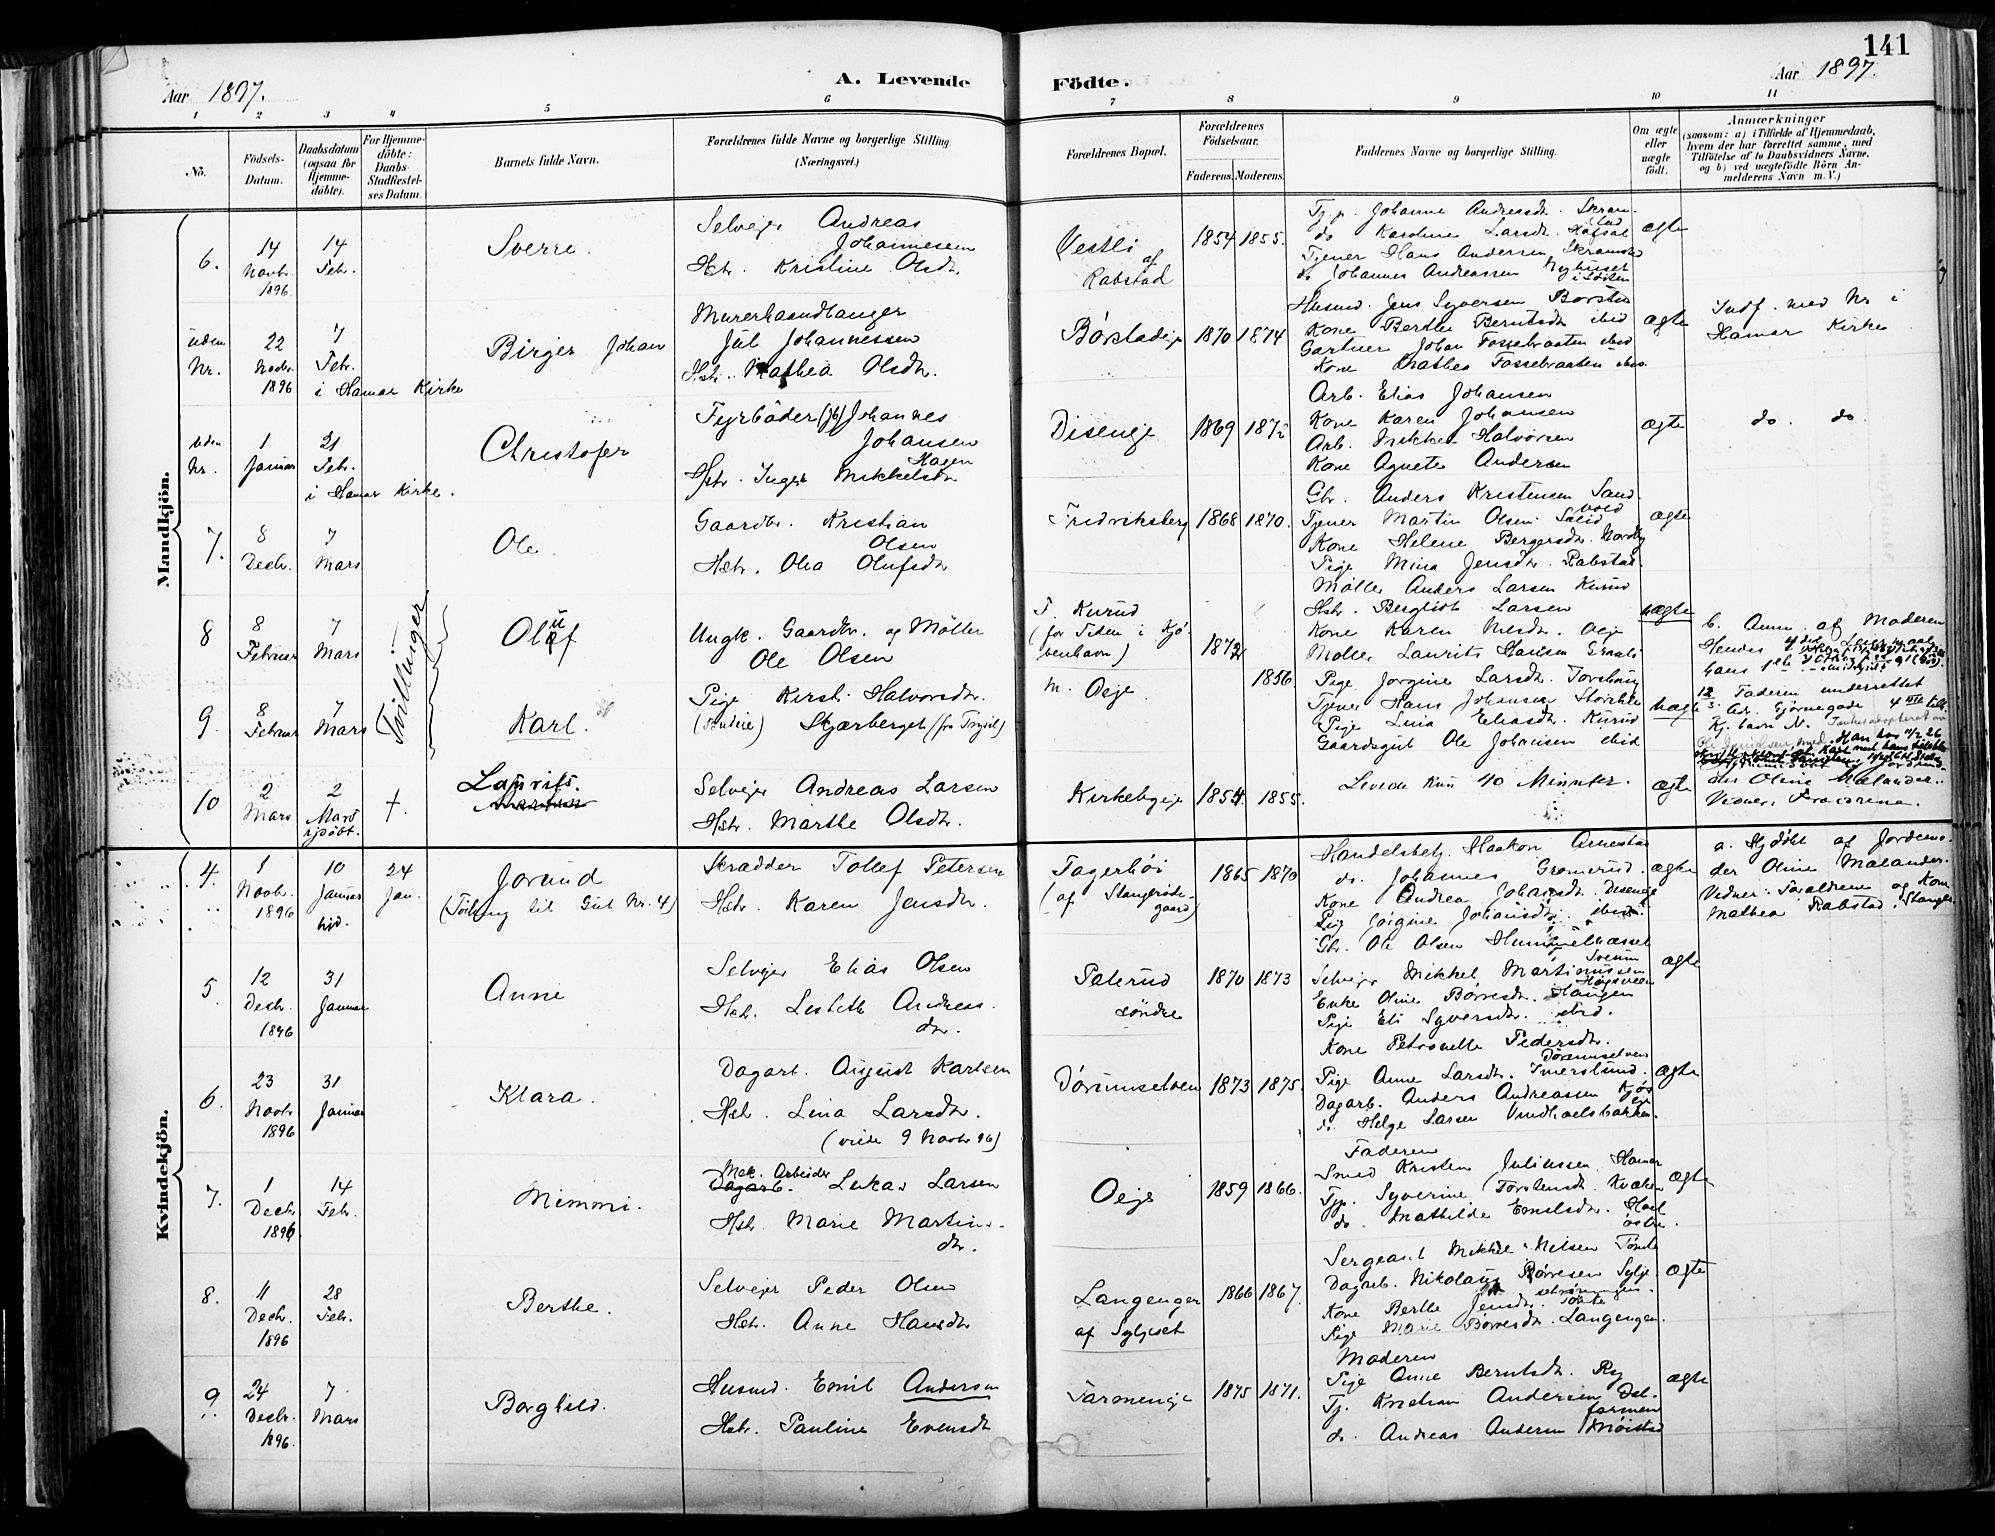 141
Aar 1897.
A. Levende
Födte.
Aar 1897.
1 2 3 4 5 6 7 8 9 10 11
No.
Födsels-
Datum.
Daabsdatum
(ogsaa for
Hjemme-
döbte).
For Hjemme-
döbte:
Daabs-
Stadfæstel-
ses Datum.
Barnets fulde Navn.
Forældrenes fulde Navne og borgerlige Stilling
(Næringsvei.)
Forældrenes Bopæl.
Forældrenes
Födselsaar.
Faderens. Moderens.
Faddernes Navne og borgerlige Stilling.
Om ægte
eller
uægte
født.
Anmærkninger
(saasom: a) i Tilfælde af Hjemmedaab,
hvem der har forrettet samme, med
Tilföielse af to Daabsvidners Navne,
og b) ved uægtefödte Börn An-
melderens Navn m. V.)
Mandkjön.
6.
14
Novbr.
1896.
14
Febr.
Sverre.
Selveier Andreas
Johannesen
Hstr. Kristine Olsdtr.
Vestli
af
Rabstad
1854 1855.
Tj. p. Johanne Andreasdt. Skram-
stad
do Karoline Larsdt.
Tjener Hans Andersen Skramstad
do Johannes Andreassen Nyhuset
i Løiten
ægte
uden
Nr.
22
Novbr.
1896
7
Febr.
i Hamar Kirke
Birger Johan
Murerhaandlanger
Jul Johannessen
Hstr. Mathea Olsdtr.
Børstadeje
1870 1874
Husmd. Jens Syversen Børstad
Kone Berthe Berntsdtr ibid
Gartner Johan Fossebraaten ibid
Kone Mathea Fossebraaten ibid.
ægte
Indf. med Nr i
Hamar Kirke
uden
Nr.
1
Januar
21
Febr.
i Hamar Kirke.
Christofer
Fyrbøder (Jb) Johannes
Johansen
Hagen
Hstr. Inger Mikkelsdtr
Diseneje
1869
Arb. Elias Johansen
Kone Karen Johansen
Arb. Mikkel Halvorsen
Kone Agnete Andersen
ægte
do. do.
7.
8
Decbr.
7
Mars
Ole
Gaardbr. Kristian
Olsen
Hstr. Olea Olufsdtr
Fredriksberg
1868 1870.
Gbr. Anders Kristensen Sand-
vold
Tjener Martin Olsen
Kone Helene Bergersdtr. Nordby
Pige Mina Jensdtr. Rabstad.
ægte
8
8
Februar
7
Mars
Tvillinger
Oluf
Ungk. Gaardbr. og Møller
Ole Olsen
F. Kurud
(for Tiden i Kjø-
benhavn)
1872
Møller Anders Larsen Kurud
Hstr. Bergliot Larsen
Kone Karen Nilsdt. Oeje
Møller Laurits Hansen
uægte
b. Anm. af Moderen
9.
8
Februar
7
Mars
Karl.
Pige Kirsti Halvorsdtr.
Skjærberget (fra Trysil)
M. Oeje.
1856.
Pige Jørgine Larsdt. Torshaug
Tjener Hans Johansen
Pige Lina Eliasdt. Kurud
Gaardsgut Ole Johansen ibid
uægte
Faderen underrettet
10
2
Mars
2
Mars
hjdöbt.
†.
Laurits.
Selveier Andreas Larsen
Hstr. Marthe Olsdtr.
Kirkebyeje
1854. 1855.
Levede kun 40 Minuter.
ægte
der Oline Mælander.
Vidner: Forældrene.
Kvindekjön.
4.
1
Novbr.
1896
10
Januar
hjd.
24
Jan.
Jorund
(Tvilling til Gut Nr. 4)
Skrædder Tollef Petersen
Hstr. Karen Jensdtr.
Fagerhöi
(af Stangpræste-
gaard)
1865 1870
Handelsbetj. Haakon Arnestad
do. Johannes Gromerud.
Kone Andrea Johansdt. Diseneje
Pige Jørgine Johansdtr. ibid.
ægte
a. Hjdöbt af Jordemo-
der Oline Mælander.
Vidner: Forældrene og Kone
Mathea Rabstad, Stange.
5.
12
Decbr.
1896
31
Januar
Anne
Selveier Elias Olsen
Hstr. Lisbeth Andreas-
dtr.
Palerud
söndre
1870 1873
Gbr. Ole Olsen Hummelhassel
Selveier Mikkel Martinussen
Enke Oline Børresdtr. Haugen
Pige Eli Syversdtr. ibid.
ægte
6.
23
Novbr.
1896
31
Januar
Klara.
Dagarb. August Karlsen
Hstr. Lina Larsdtr.
(viede 9 Novbr 96)
Dörumselven
1873 1875.
Kone Petronelle Pedersdtr.
Dörumselven
Pige Anne Larsdtr. Imerslund.
Dagarb. Anders Andreassen
do. Helge Larsen
ægte
7.
1
Decbr.
1896
14
Febr.
Mimmi.
Mek. Arbeider
Dagarb. Lukas Larsen
Hstr. Marie Martins-
dtr.
Oeje
1859 1866.
Faderen
Smed Kristen Juliussen, Hamar
Tjp. Syverine Torstensdt. Kvæken
do. Mathilde Emilsdtr. Hoel
östre.
ægte
8.
11
Decbr.
1896
28
Febr.
Berthe.
Selveier Peder Olsen
Hstr. Anne Hansdtr
Langengen
af Syljeset
1866 1867.
Sergeant Mikkel Nilsen Tomte
Dagarb. Nikolaus Børresen Sylje-
setröningen.
Kone Berthe Jensdtr. Tomte
Pige Marie Børresdtr. Langengen.
ægte
9
24
Decbr.
1896.
7
Mars
Borghild.
Husmd. Emil Andersen
Hstr. Pauline Evensdtr
Farmeneje
1875 1871.
Moderen
Pige Anne Berntsdtr. Ry
Tj. Kristian Andersen Øst-
farmen
do. Andreas Andersen
ægte